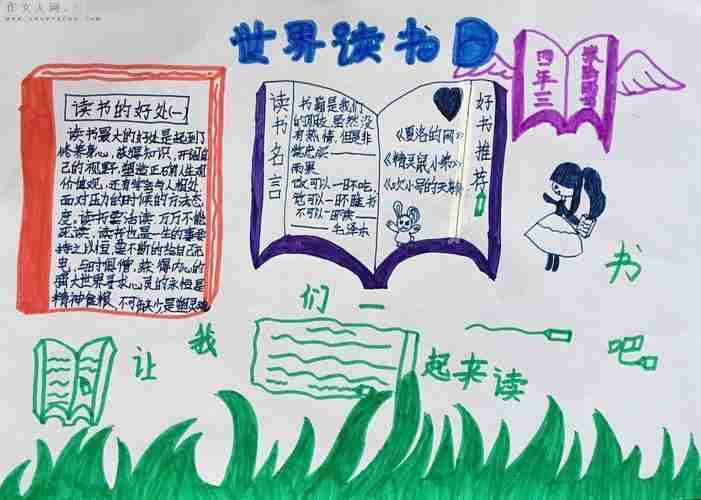 作文人网
世界读书日
四年三
读书的好处(一)
读书最大的好处是起到了
修养身心,获得知识,开阔自
己的视野,塑造正确人生观
价值观,还有学会与人相处
面对压力的时候的方法态
度。读书要活读,万万不能
死读,读书也是一生的事要
持之以恒,要不断的给自己充
电,与时俱增,获得内心的
强大世界寻求心灵的永恒是
精神食粮,不可缺少是塑灵魂
读书名言
书籍是我们
的朋友,虽然没
有热情,但是非
常忠实——
雨果
饭可以一日不吃,
觉可以一日不睡书
不可以一日不读——
毛泽东
好书推荐
《夏洛的网》
《精灵鼠小弟》
《吹小号的天鹅》
让我们一起来读书吧